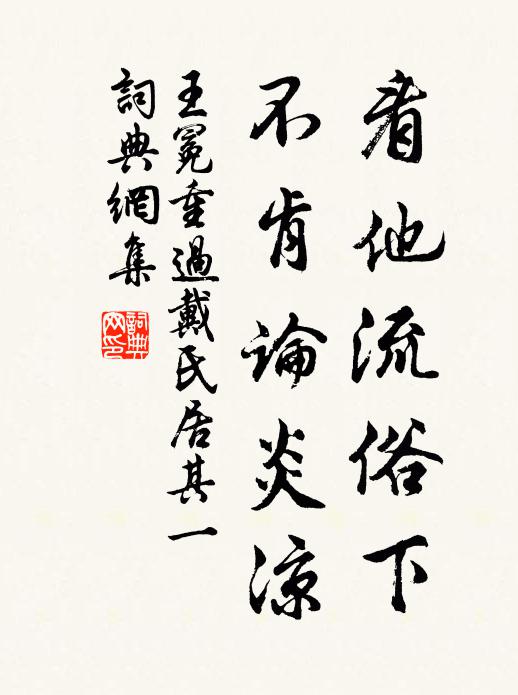 看他流俗下
不肯論炎涼
王冕重過戴氏居其一
詞典網集
詞典網印